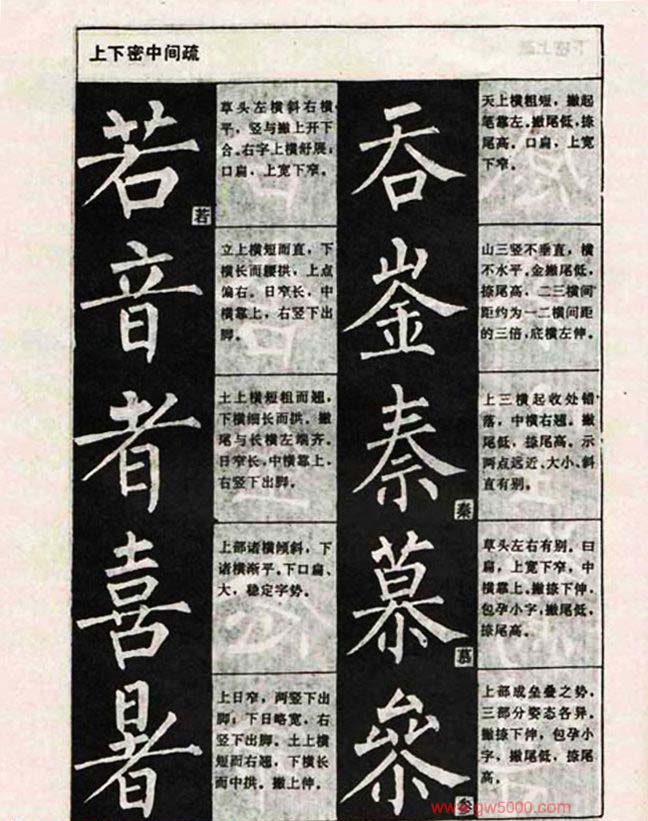 上下密中间疏
若
若
草头左横斜右横
平，竖与撇上开下
合。右字上横舒展，
口扁，上宽下窄。
吞
天上横粗短，撇起
笔靠左。撇尾低，捺
尾高。口扁，上宽
下窄。
音
立上横短而直，下
横长而腰拱，上点
偏右。日窄长，中
横靠上，右竖下出
脚。
崟
山三竖不垂直，横
不水平。金撇尾低，
捺尾高，二三横间
距约为一二横间距
的三倍，底横左伸。
者
土上横短粗而翘，
下横细长而拱。撇
尾与长横左端齐。
日窄长，中横靠上，
右竖下出脚。
秦
秦
上三横起收处错
落，中横右翘。撇
尾低，捺尾高。示
两点远近、大小、斜
直有别。
喜
上部诸横倾斜，下
诸横渐平。下口扁、
大，稳定字势。
慕
慕
草头左右有别。曰
扁，上宽下窄，中
横靠上。撇捺下伸，
包孕小字，撇尾低，
捺尾高。
暑
上日窄，两竖下出
脚；下日略宽，右
竖下出脚。土上横
短而右翘，下横长
而中拱。撇上伸。
參
参
上部成垒叠之势，
三部分姿态各异。
撇捺下伸，包孕小
字，撇尾低，捺尾
高。
www.gw5000.com